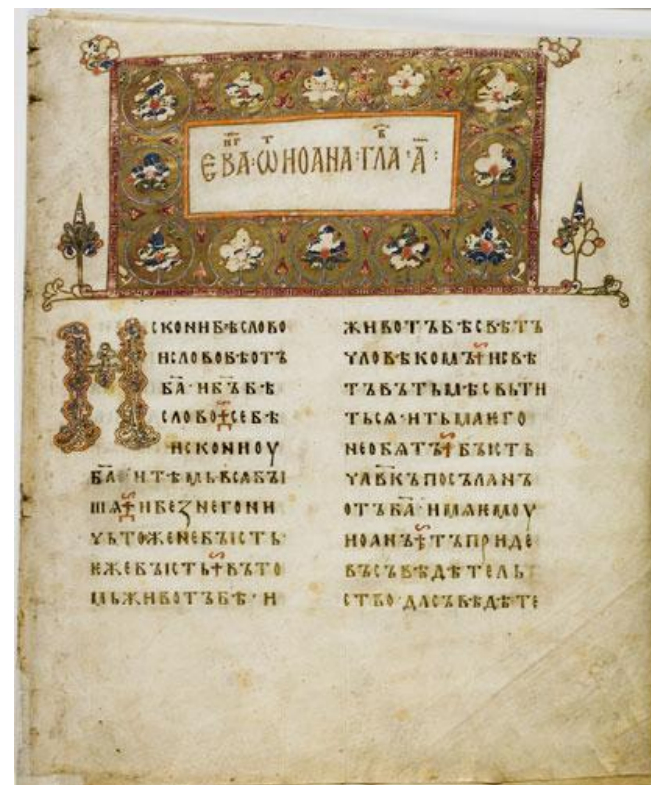 ЄВАНГ҃·Ѿ ИОАНА·ГЛАВ·А҃:
ИСКОНИБѢСЛОВО
ИСЛОВОБѢОТЪ
Б҃А·ИБ҃ЪБѢ
СЛОВО·СЕБѢ
ИСКОНИОУ
Б҃А·ИТѢМЬВСѦБЪІ
ШѦ·ИБЕЗНЕГОНИ
ЧЬТОЖЕНЕБЪІСТЬ·
ЕЖЕБЪІСТЬ·ВЪТО
МЬЖИВОТЪБѢ·И
ЖИВОТЪБѢСВѢТЪ
ЧЛОВѢКОМЪ·ИСВѢ
ТЪВЪТЬМѢСВЬТИ
ТЬСѦ·ИТЬМАѤГО
НЕОБѦТЪ·БЪІСТЬ
ЧЛ҃ВКЪПОСЪЛАНЪ
ОТЪБ҃А·ИМѦѤМОУ
ИОАНЪ·ТЪПРИДЕ
ВЪСЪВѢДѢТЕЛЬ
СТВО·ДАСЪВѢДѢТЕ